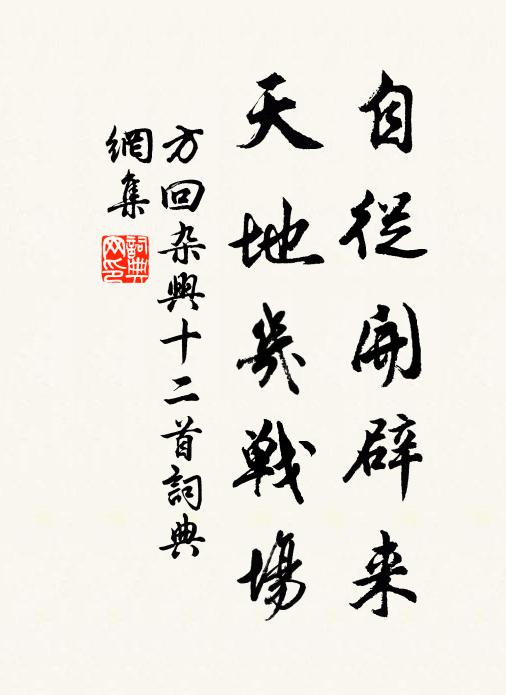 自從開辟来
天地幾戰場
方回杂興十二首詞典
網集
詞典
网印